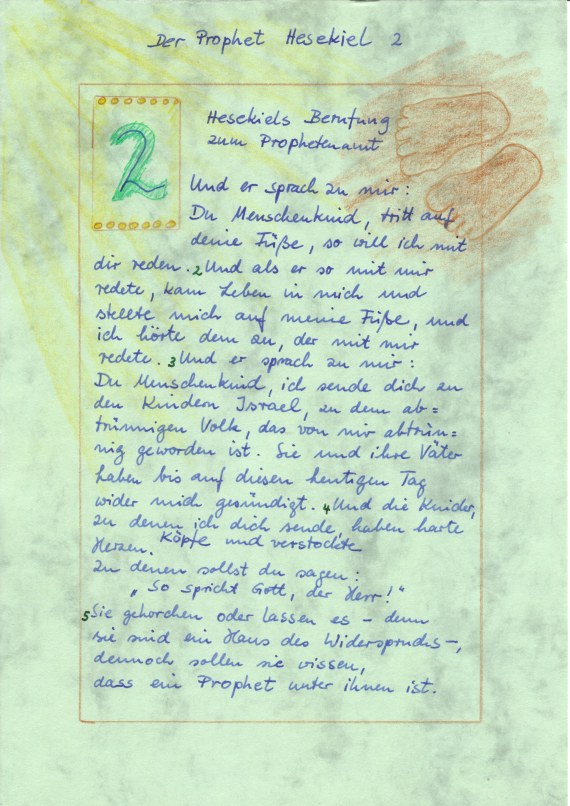 Der Prophet Hesekiel 2
2
Hesekiels Berufung
zum Prophetenamt
Und er sprach zu mir:
Du Menschenkind, tritt auf
deine Füße, so will ich mit
dir reden. 2 Und als er so mit mir
redete, kam Leben in mich und
stellte mich auf meine Füße, und
ich hörte dem zu, der mit mir
redete. 3 Und er sprach zu mir:
Du Menschenkind, ich sende dich zu
den Kindern Israel, zu dem ab=
trünnigen Volk, das von mir abtrün=
nig geworden ist. Sie und ihre Väter
haben bis auf diesen heutigen Tag
wider mich gesündigt. 4 Und die Kinder,
zu denen ich dich sende, haben harte
Köpfe und verstockte
Herzen.
Zu denen sollst du sagen:
„So spricht Gott, der Herr!"
5 Sie gehorchen oder lassen es – denn
sie sind ein Haus des Widerspruchs –,
dennoch sollen sie wissen,
dass ein Prophet unter ihnen ist.